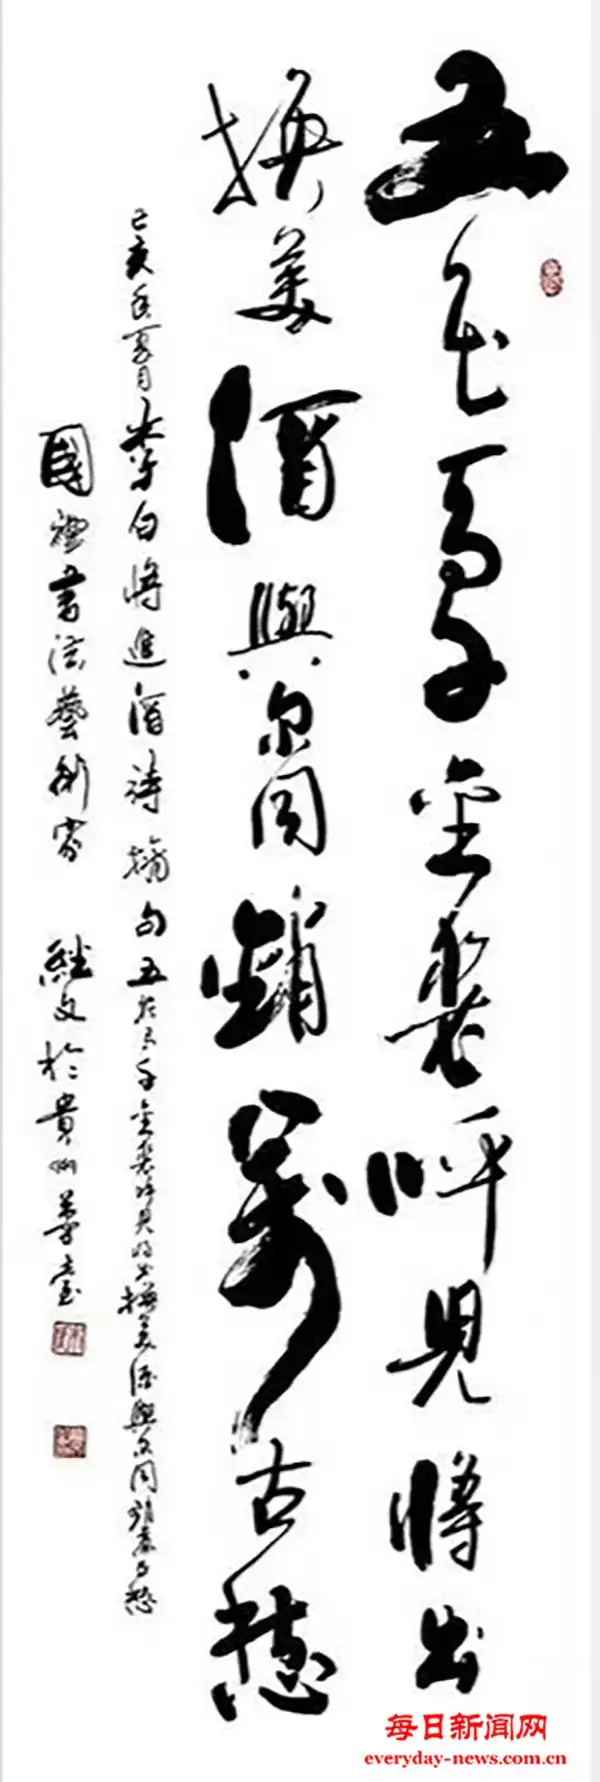 五花馬千金裘呼兒將出
換美酒與尔同銷萬古愁
己亥年夏月李白將進酒詩摘句五花馬千金裘呼兒將出換美酒與尔同銷萬古愁
國禮書法藝術家 继文於貴州茅臺
每日新闻网
everyday-news.com.cn